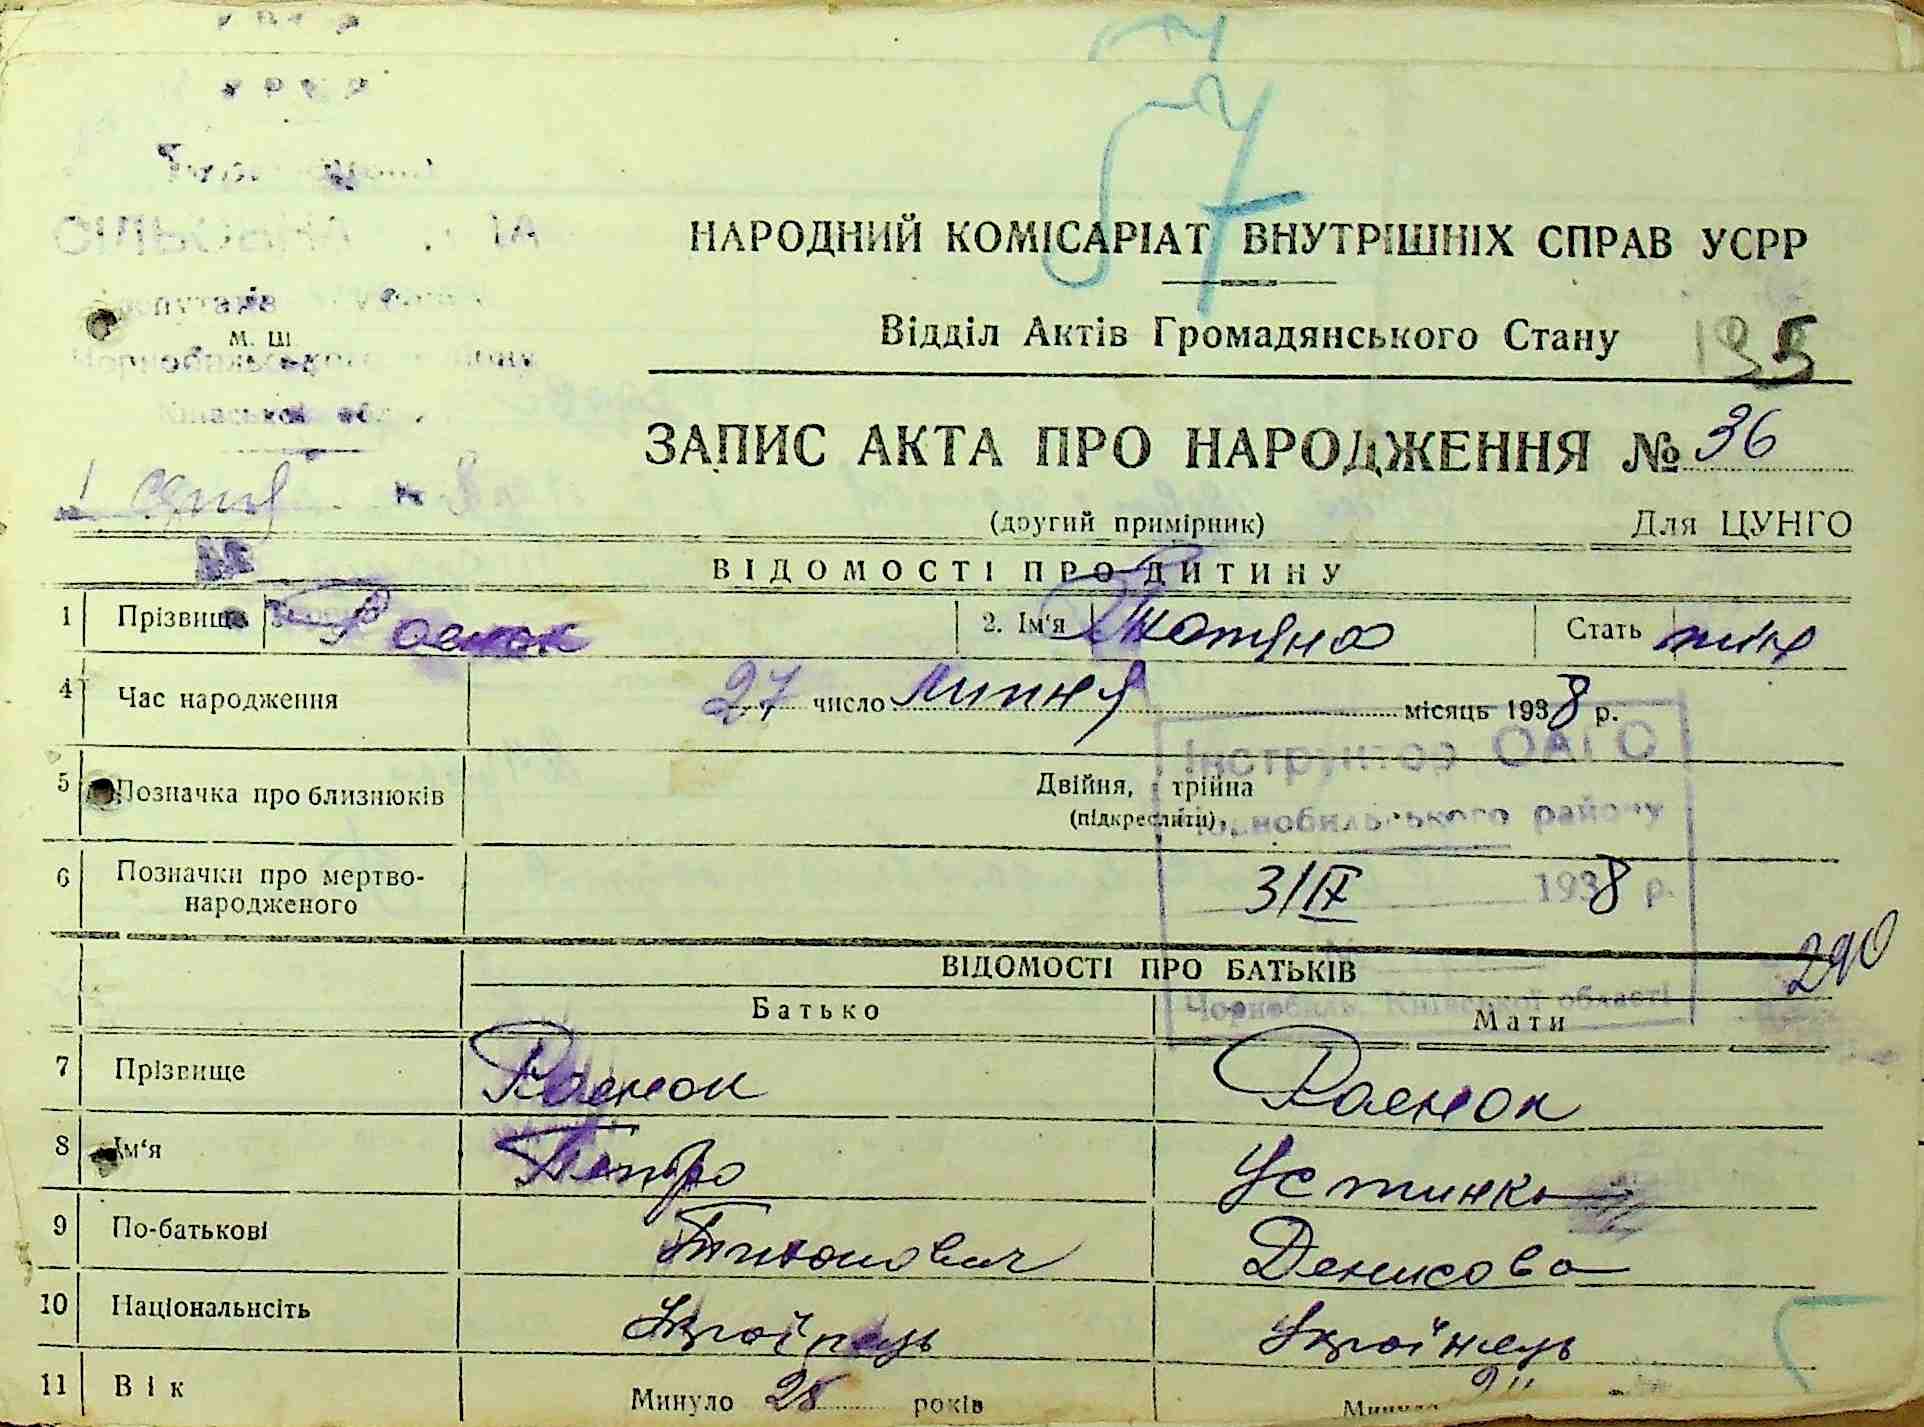 57
НАРОДНИЙ КОМІСАРІАТ ВНУТРІШНІХ СПРАВ УСРР
Відділ Актів Громадянського Стану
195
М. Ш.
Чорнобильського району
Київської обл.
ЗАПИС АКТА ПРО НАРОДЖЕННЯ № 36
(другий примірник) Для ЦУНГО
ВІДОМОСТІ ПРО ДИТИНУ
1 Прізвище Раенок 2. Ім'я Стать жін
4 Час народження 27 число липня місяць 1938 р.
Інструктор ОАГС
5 Позначка про близнюків Двійня, трійна
(підкреслити)
Чорнобильського району
6 Позначки про мертво-
народженого
3/IX 1938 р.
290
ВІДОМОСТІ ПРО БАТЬКІВ
Чорнобиль, Київської області
Батько Мати
7 Прізвище Раенок Раенок
8 Ім'я Петро Устинка
9 По-батькові Тихонович Денисова
10 Національнсіть Українець Українець
11 Вік Минуло 28 років Минуло